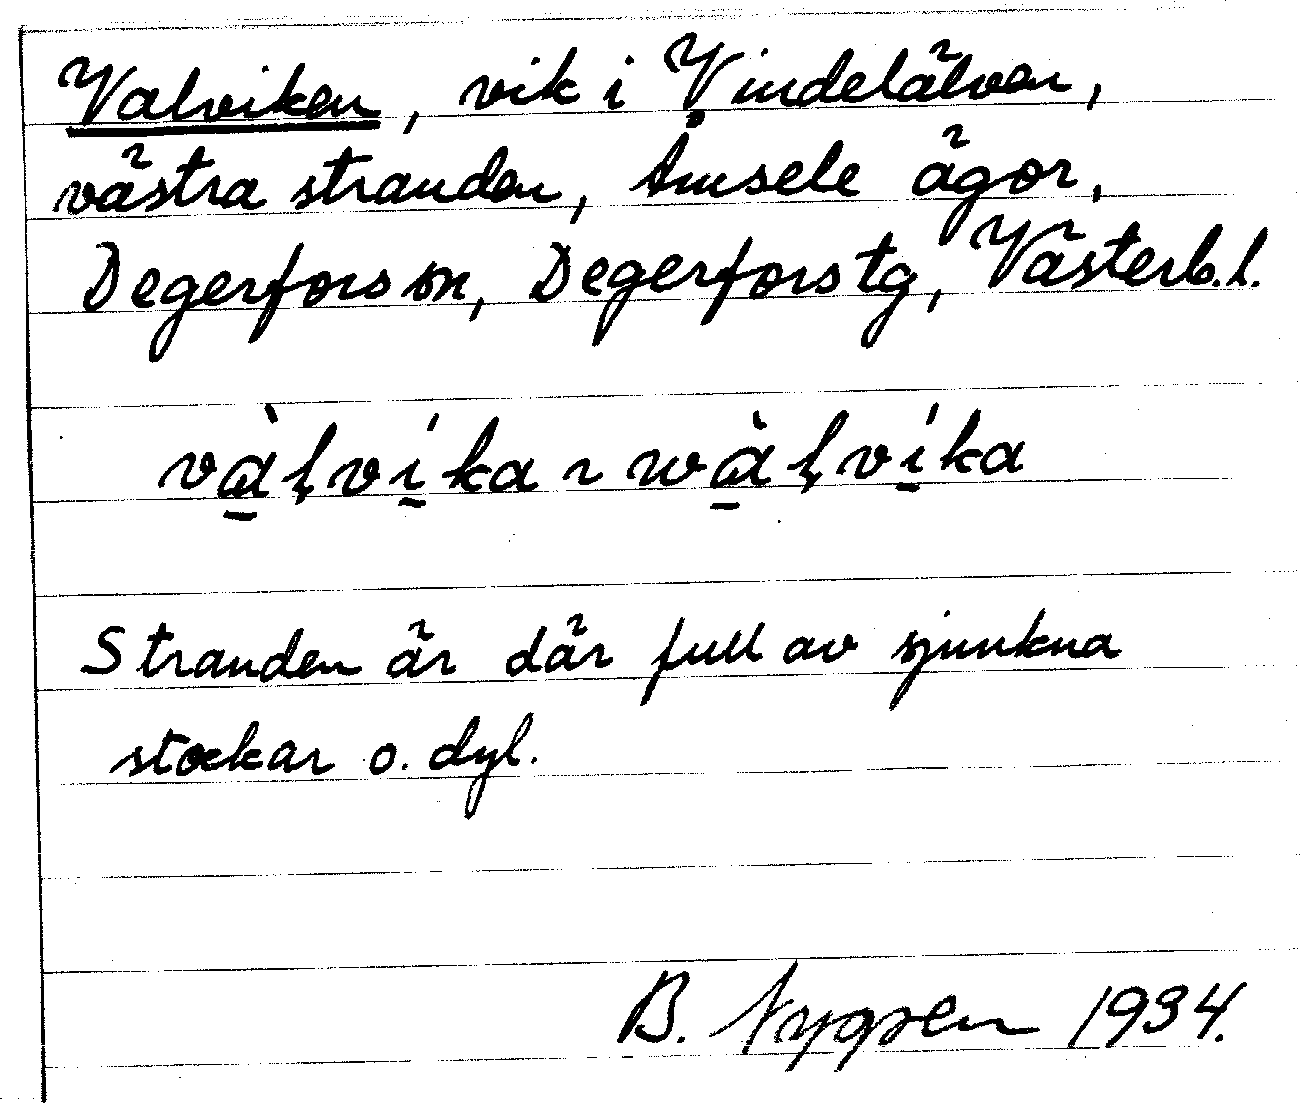 Valviken, vik i Vindelälven,
västra stranden, Åmsele ägor,
Degerfors sn, Degerfors tg, Västerb.l.
vàḷvíka ~ wàḷvíka
Stranden är där full av sjunkna
stockar o. dyl.
B. Nygren 1934.